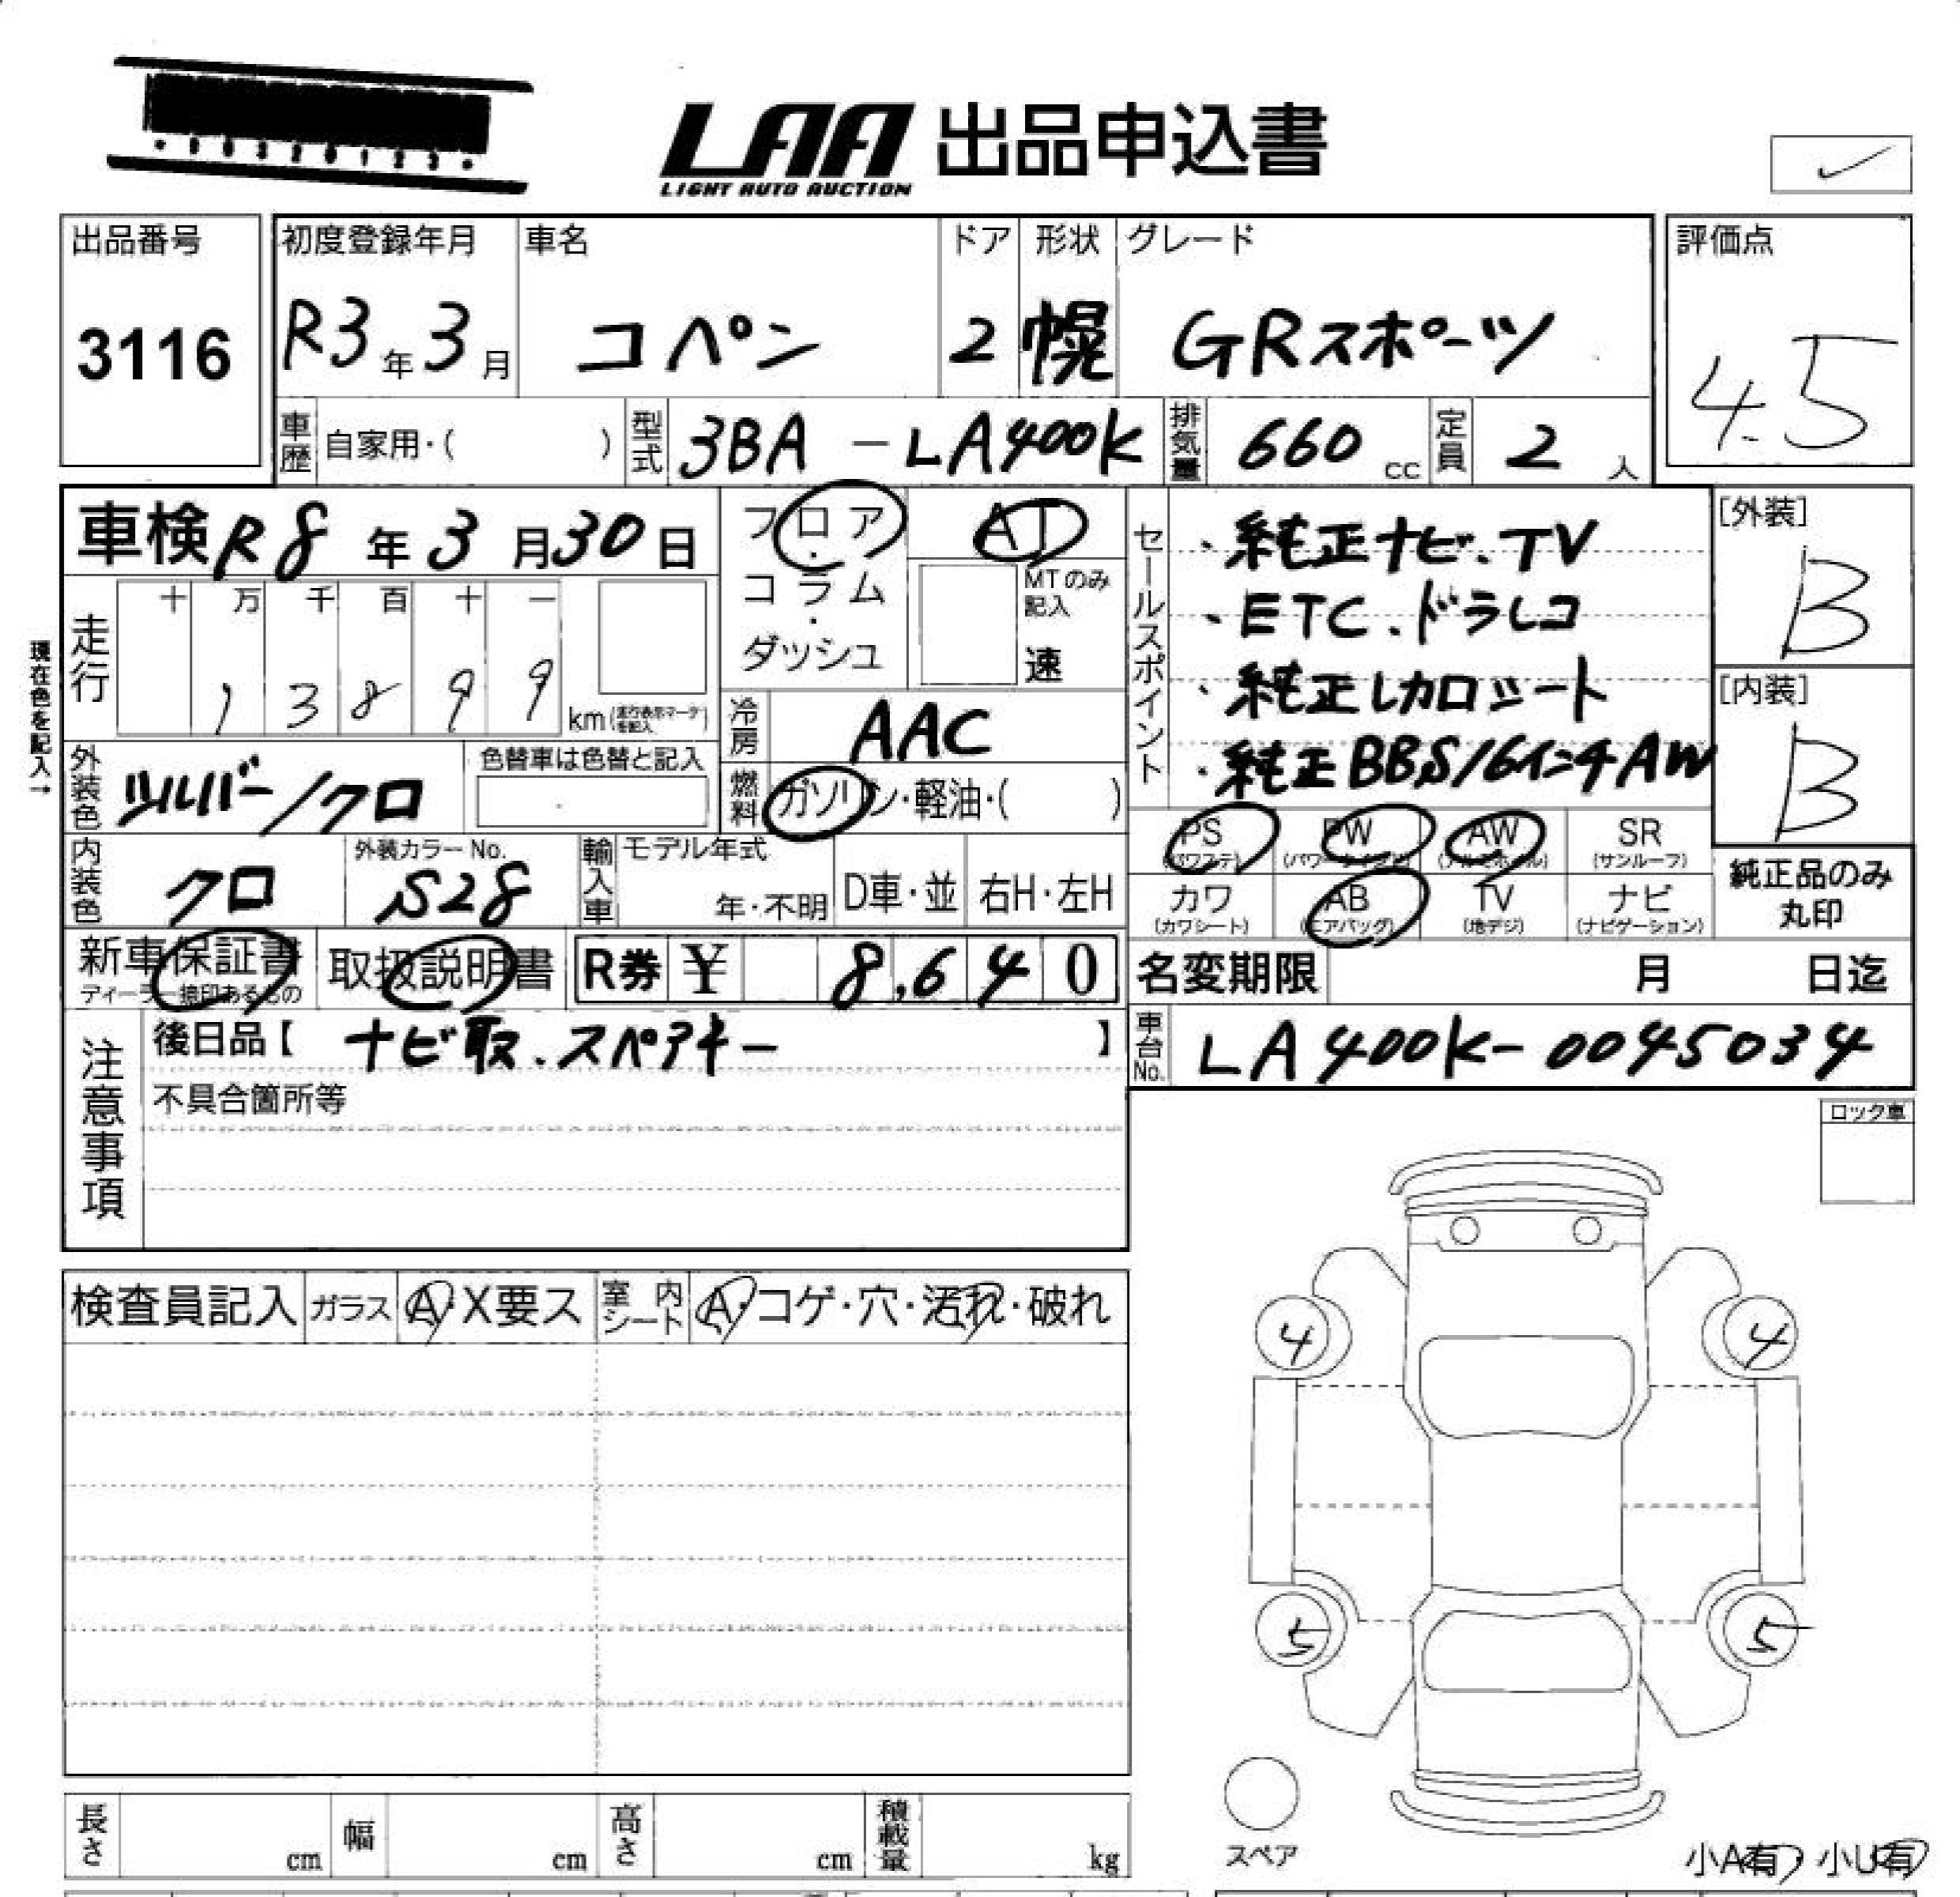 LAA 出品申込書
LIGHT AUTO AUCTION
出品番号
3116
初度登録年月
R3年3月
車名
コペン
ドア
2
形状
幌
グレード
GRスポーツ
評価点
4.5
車歴 自家用・( )
型式 3BA-LA400K
排気量 660 cc
定員 2 人
車検 R8年3月30日
フロア・コラム・ダッシュ
AT
MTのみ記入
速
セールスポイント
・純正ナビ、TV
・ETC、ドラレコ
・純正レカロシート
・純正BBS16インチAW
[外装]
B
[内装]
B
現在色を記入→
走行
十 万 千 百 十 一
1 3 8 9 9 km
冷房 AAC
燃料 ガソリン・軽油・( )
外装色 シルバー/クロ
色替車は色替と記入
内装色 クロ
外装カラーNo. S28
輸入車 モデル年式
年・不明
D車・並
右H・左H
PS (パワステ)
PW
AW
SR (サンルーフ)
カワ (カワシート)
AB (エアバッグ)
TV (地デジ)
ナビ (ナビゲーション)
純正品のみ
丸印
新車保証書
取扱説明書
R券 ¥ 8,640
名変期限 月 日迄
注意事項
後日品【ナビ取、スペアキー】
不具合箇所等
車台No. LA400K-0045034
ロック車
検査員記入
ガラス A・X要ス
室内シート A・コゲ・穴・汚れ・破れ
4 4
5 5
スペア
小A有・小U有
長さ cm
幅 cm
高さ cm
積載量 kg